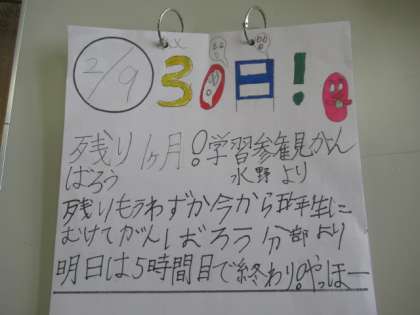 2/9
30日!
残り1ヶ月!学習参観がん
ばろう 水野より
残りもうわずか今から五年生に
むけてがんばろう 分部より
明日は5時間目で終わり!やっほー